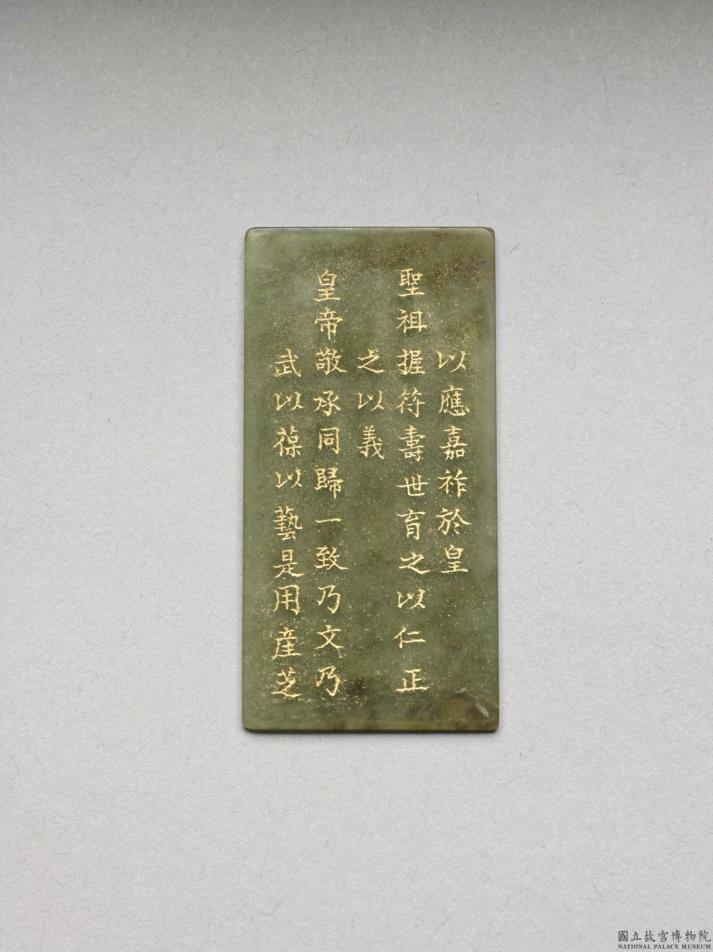 以應嘉祚於皇
聖祖握符壽世育之以仁正
之以義
皇帝敬承同歸一致乃文乃
武以葆以藝是用產芝
國立故宮博物院
NATIONAL PALACE MUSEUM